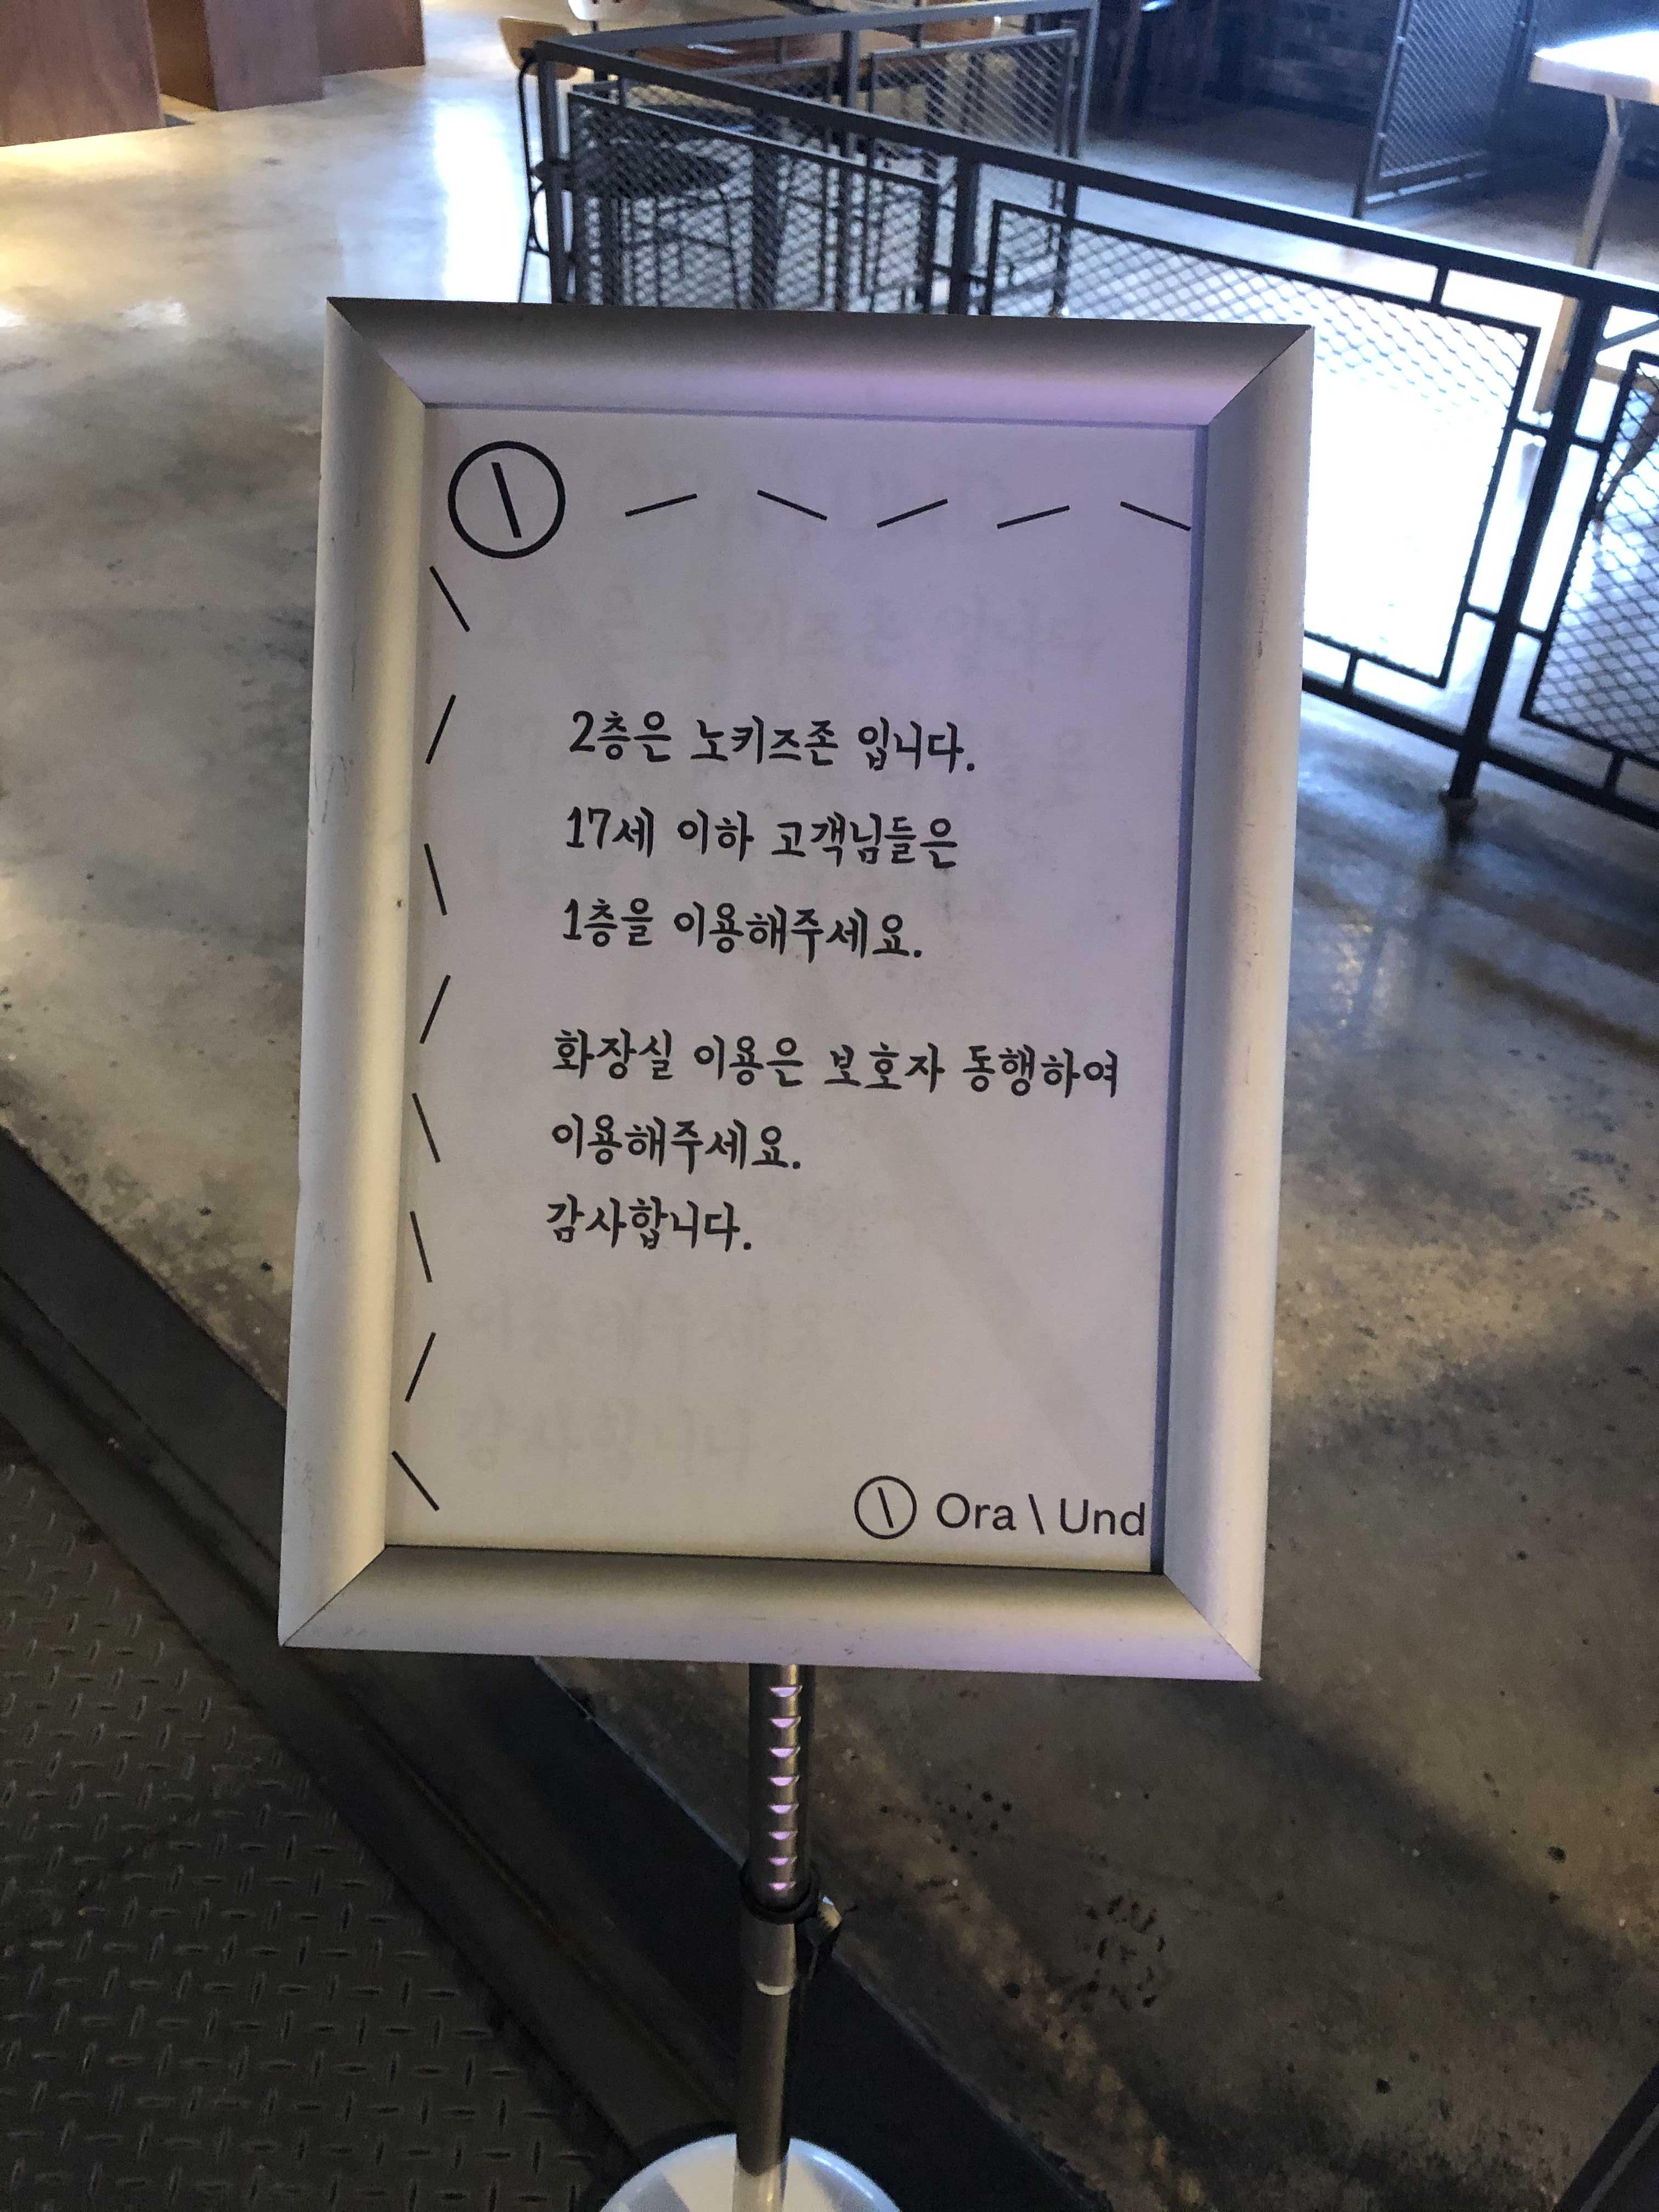 2층은 노키즈존 입니다.
17세 이하 고객님들은
1층을 이용해주세요.
화장실 이용은 보호자 동행하여
이용해주세요.
감사합니다.
Ora \ Und